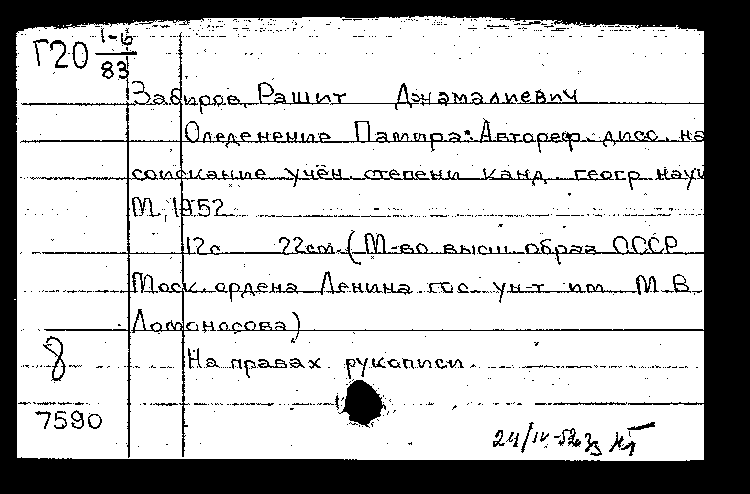 Г20 1-6
83
Забиров, Рашит Джамалиевич
Оледенение Памира: Автореф. дисс. на
соискание учён. степени канд. геогр. наук
М., 1952
12с 22см. (М-во высш. образ СССР
Моск. ордена Ленина гос. ун-т им М В
Ломоносова)
На правах рукописи.
8
7590